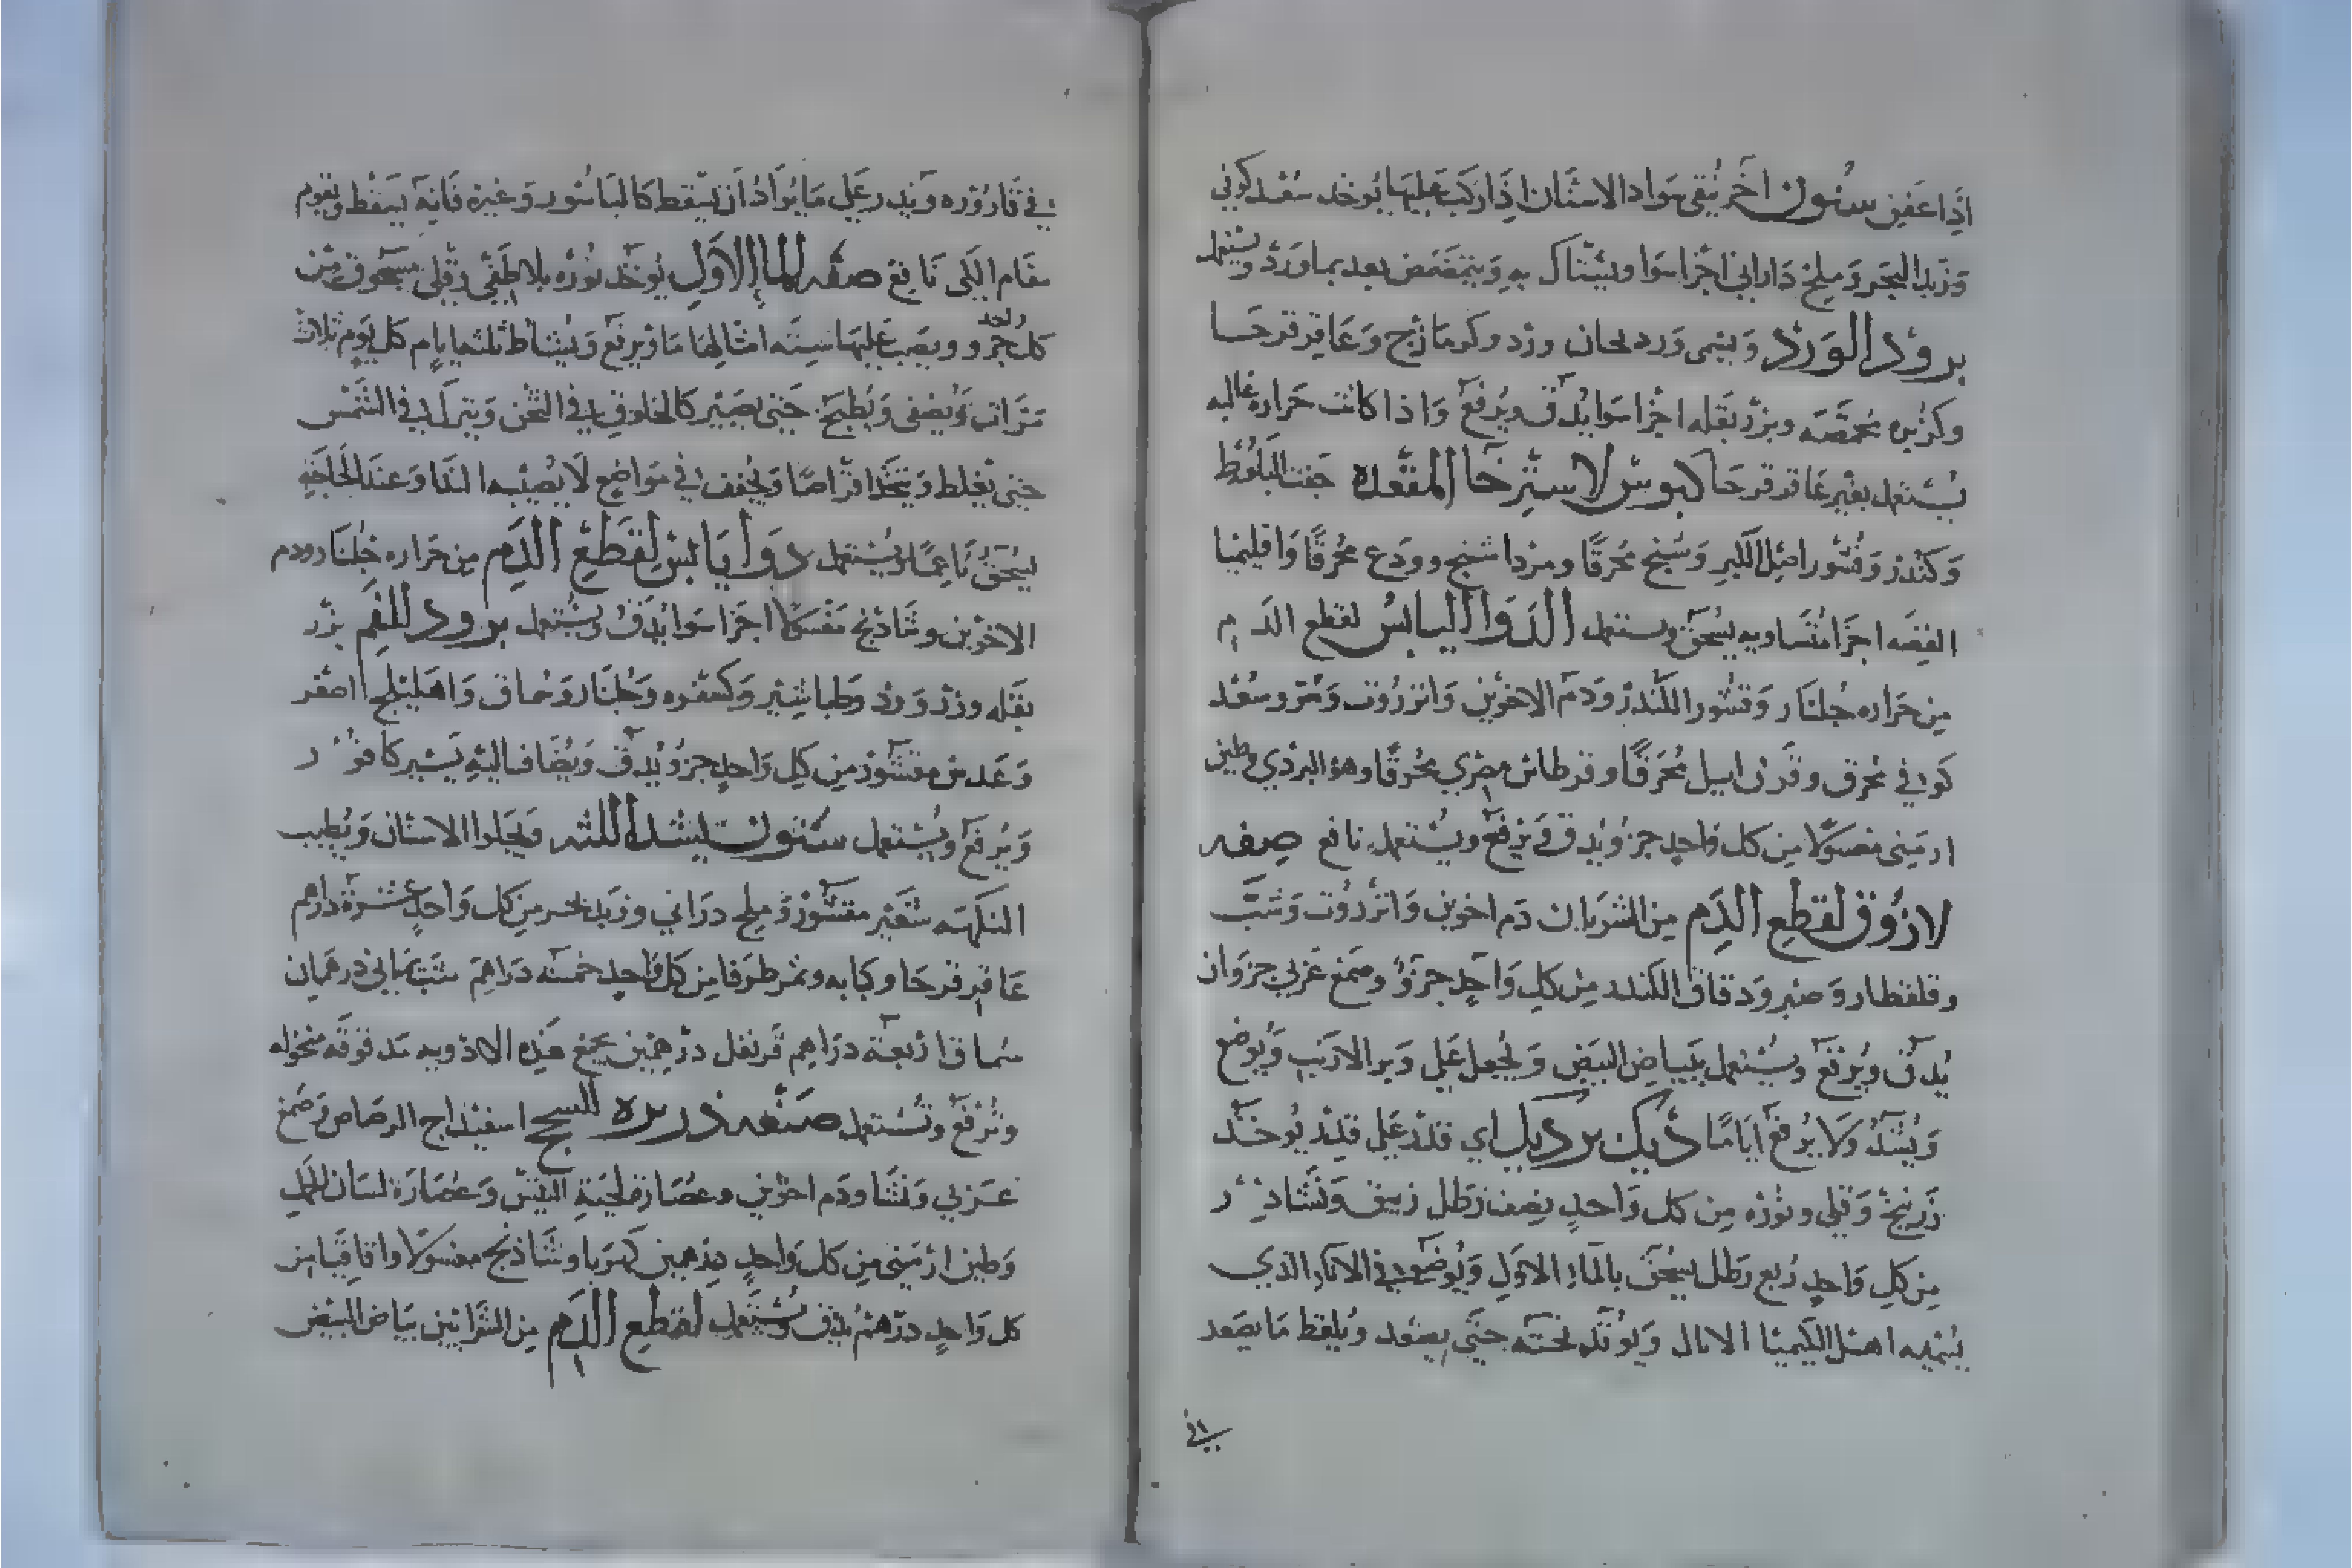 اذا عفن سنون اخر ينقى سواد الاسنان اذا ركب عليها يوخد سعد كوفي
وزبد البحر وملح داراني اجزا سوا ويستاك به ويتمضمض بعد بماورد ويستعمل
برود الورد ويسمى ورد لحان ورد وكزمازج وعاقر قرحا
وكزبره محمصه وبزر بقله اجزا سوا يدق ويرفع واذا كانت حراره غالبه
يستعمل بغير عاقر قرحا كبوس لاسترخا المقعده جفت البلوط
وكندر وقشور اصل الكبر وشيح محرقا ومرداسنج وودع محرقا واقليميا
الفضه اجزا متساويه يسحق ويستعمل الدوا اليابس لقطع الدم
من حراره جلنار وقشور الكندر ودم الاخوين وانزروت ومر وسعد
كوفي محرق وقرن ايل محرقا وقرطاس مصري محرقا وهو البردي وطين
ارميني مغسولا من كل واحد جزو يدق ويرفع ويستعمل نافع صفه
لازوق لقطع الدم من الشريان دم اخوين وانزروت وشب
وقلقطار وصبر ودقاق الكندر من كل واحد جزو وصمغ عربي جزوان
يدق ويرفع ويستعمل ببياض البيض ويجعل على وبر الارنب ويوضع
ويشد ولا يرفع اياما ديك برديك اي قدر على قدر يوخد
زرنيخ وقلي ونوره من كل واحد نصف رطل زيبق ونشادر
من كل واحد ربع رطل يسحق بالماء الاول ويوضع في الاناء الذي
يسميه اهل الكيميا الاثال ويوقد تحته حتى يصعد ويلقط ما يصعد
في قاروره ويذر على ما يراد ان يسقط كالباسور وغيره فانه يسقط ويقوم
مقام الكى نافع صفه الماء الاول يوخد نوره بلا طفي وقلي مسحوق من
كل واحد جزو ويصب عليها سته امثالها ما ويرفع ويساط ثلثه ايام كل يوم ثلاث
مرات ويصفى ويطبخ حتى يصير كالخلوق في الثخن ويترك في الشمس
حتى يغلظ ويتخذ اقراصا ويجفف في مواضع لا يصيبها الندا وعند الحاجة
يسحق ناعما ويستعمل دوا يابس لقطع الدم من حراره جلنار ودم
الاخوين وشاذنج مغسولا اجزا سوا يدق ويستعمل برود للفم بزر
بقله وزر ورد وطباشير وكسفره وجلنار وسماق واهليلج اصفر
وعدس مقشور من كل واحد جزو يدق ويضاف اليه يسير كافور
ويرفع ويستعمل سنون يشد اللثه ويجلوا الاسنان ويطيب
النكهه شعير مقشور وملح دراني وزبد بحر من كل واحد عشرة دراهم
عاقر قرحا وكبابه وثمر طرفا من كل واحد خمسه دراهم شب يماني درهمان
سماق اربعة دراهم قرنفل درهمين يجمع هذه الادويه مدقوقه منخوله
وترفع وتستعمل صفه ذريره للسحج اسفيذاج الرصاص وصمغ
عربي ونشا ودم اخوين وعصارة لحية التيس وعصارة لسان الحمل
وطين ارميني من كل واحد درهمين كهربا وشاذنج مغسولا واقاقيا من
كل واحد درهم يدق ويستعمل لقطع الدم من الشرايين بياض البيض